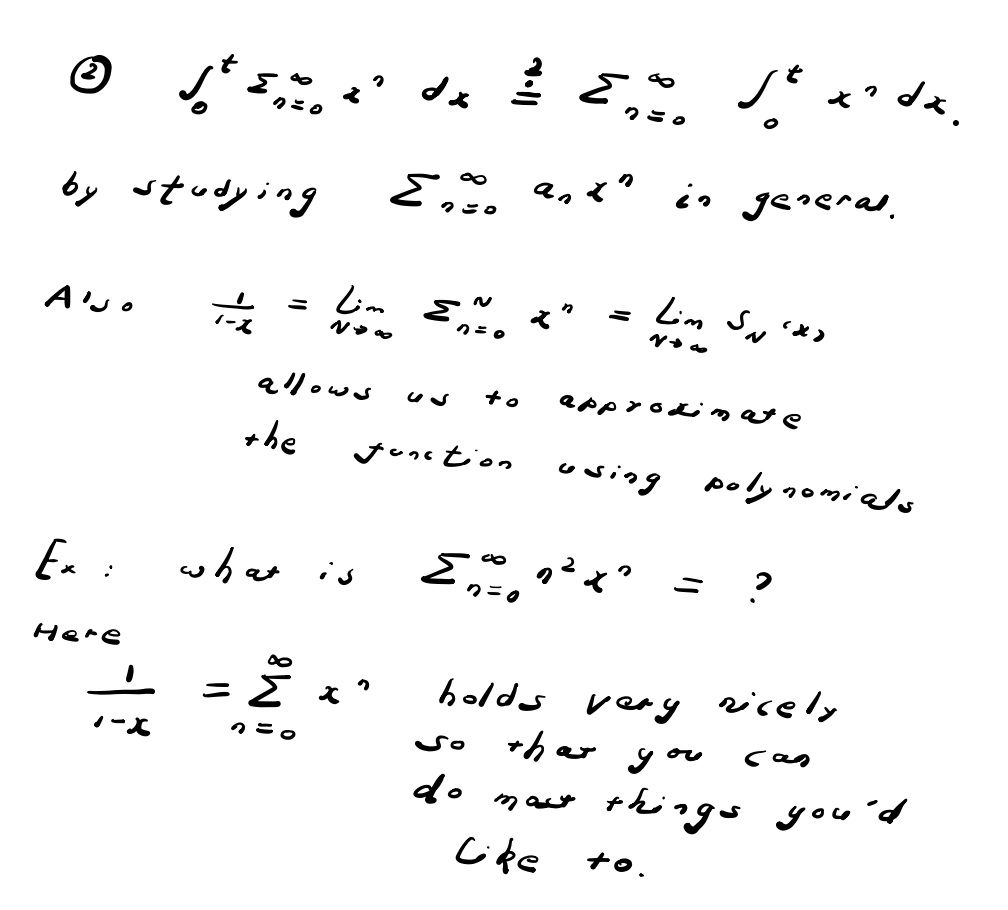 ② ∫₀ᵗ Σ_{n=0}^∞ xⁿ dx ≟ Σ_{n=0}^∞ ∫₀ᵗ xⁿ dx.
by studying Σ_{n=0}^∞ aₙ xⁿ in general.
Also 1/(1-x) = lim_{N→∞} Σ_{n=0}^N xⁿ = lim_{N→∞} S_N(x)
allows us to approximate
the function using polynomials
Ex: what is Σ_{n=0}^∞ n²xⁿ = ?
Here
1/(1-x) = Σ_{n=0}^∞ xⁿ holds very nicely
so that you can
do most things you'd
like to.